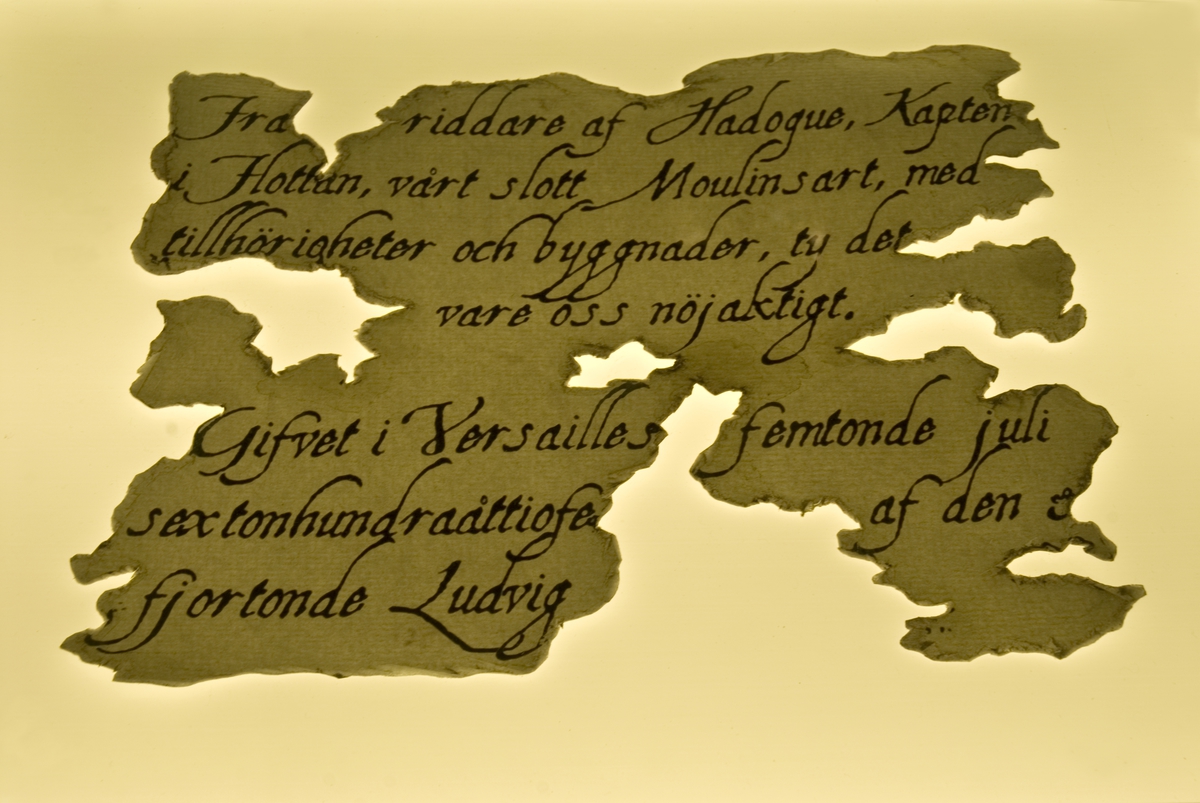 Fra riddare af Hadoque, Kapten
i Flottan, vårt slott Moulinsart, med
tillhörigheter och byggnader, ty det
vare oss nöjaktigt.
Gifvet i Versailles femtonde juli
sextonhundraåttiofe af den
fjortonde Ludvig